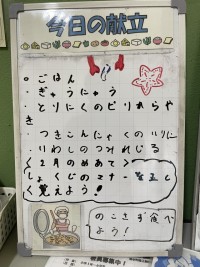 今日の献立
・ごはん
・ぎゅうにゅう
・とりにくのピリからや
き
・つきこんにゃくの
・いわしのつみれじる
2月のめあて
しょくじのマナーを正し
く覚えよう!
のこさず食べ
よう!